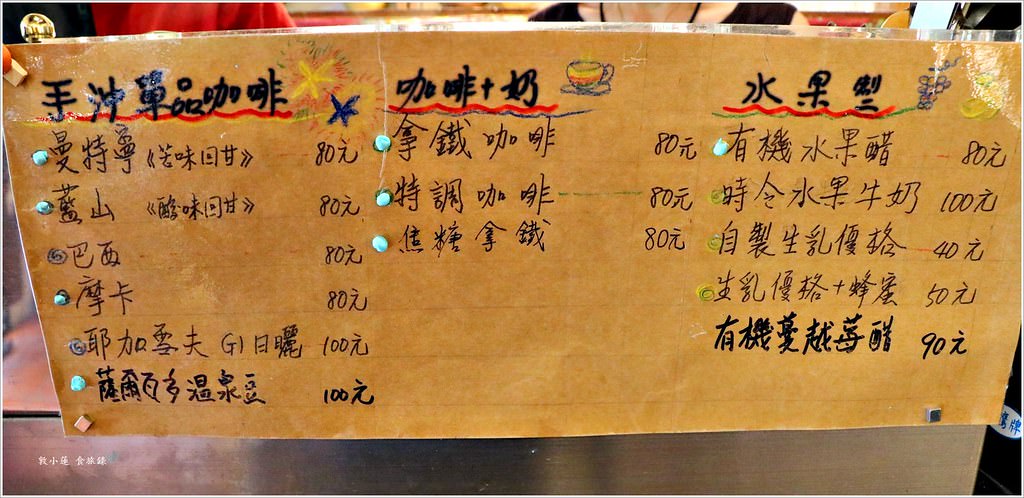 手沖單品咖啡
曼特寧《苦味回甘》 80元
藍山 《酸味回甘》 80元
巴西 80元
摩卡 80元
耶加雪夫 G1日曬 100元
薩爾瓦多溫泉豆 100元
咖啡+奶
拿鐵咖啡 80元
特調咖啡 80元
焦糖拿鐵 80元
水果製
有機水果醋 80元
時令水果牛奶 100元
自製生乳優格 40元
生乳優格+蜂蜜 50元
有機蔓越莓醋 90元
敦小蓮 食旅錄